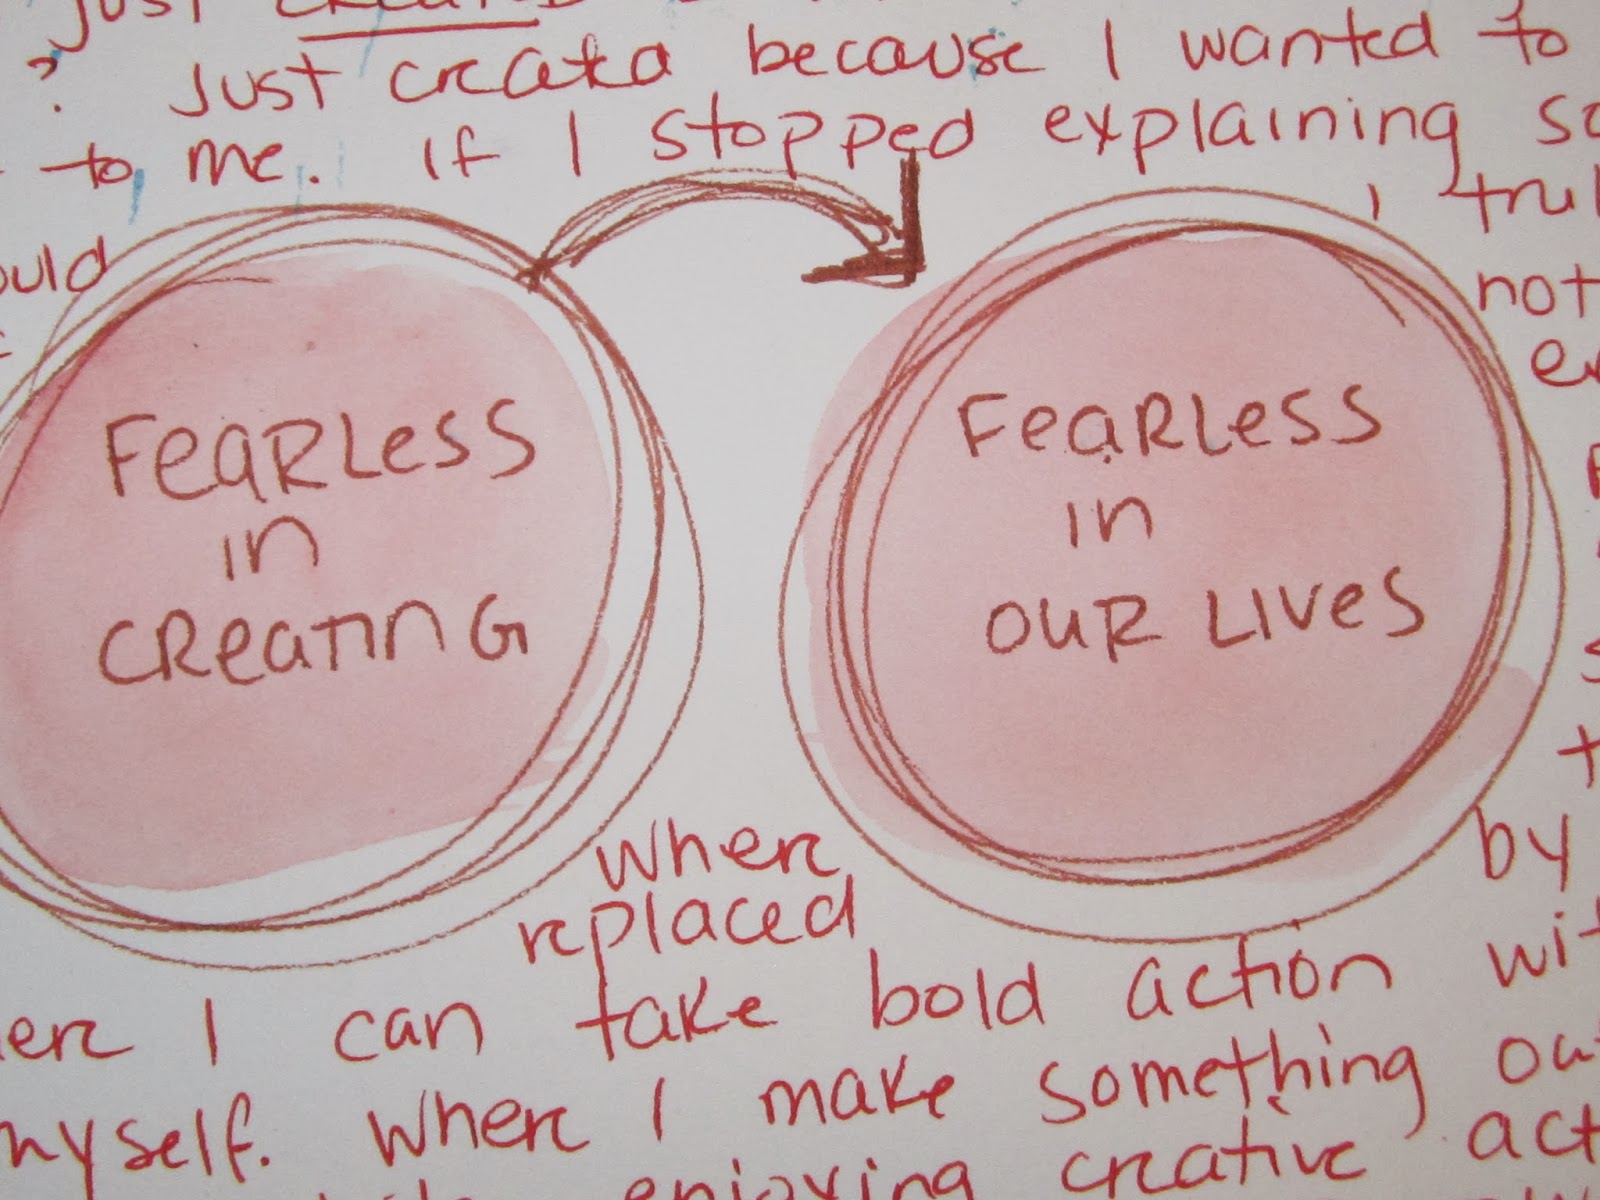 just created
? Just created because I wanted to
to me. If I stopped explaining so
ould
I trul
not
FeARLess
in
CReATING
FeaRLess
in
OUR LIVes
by
where
replaced
ere I can take bold action wit
myself. Where I make something out
enjoying creative act